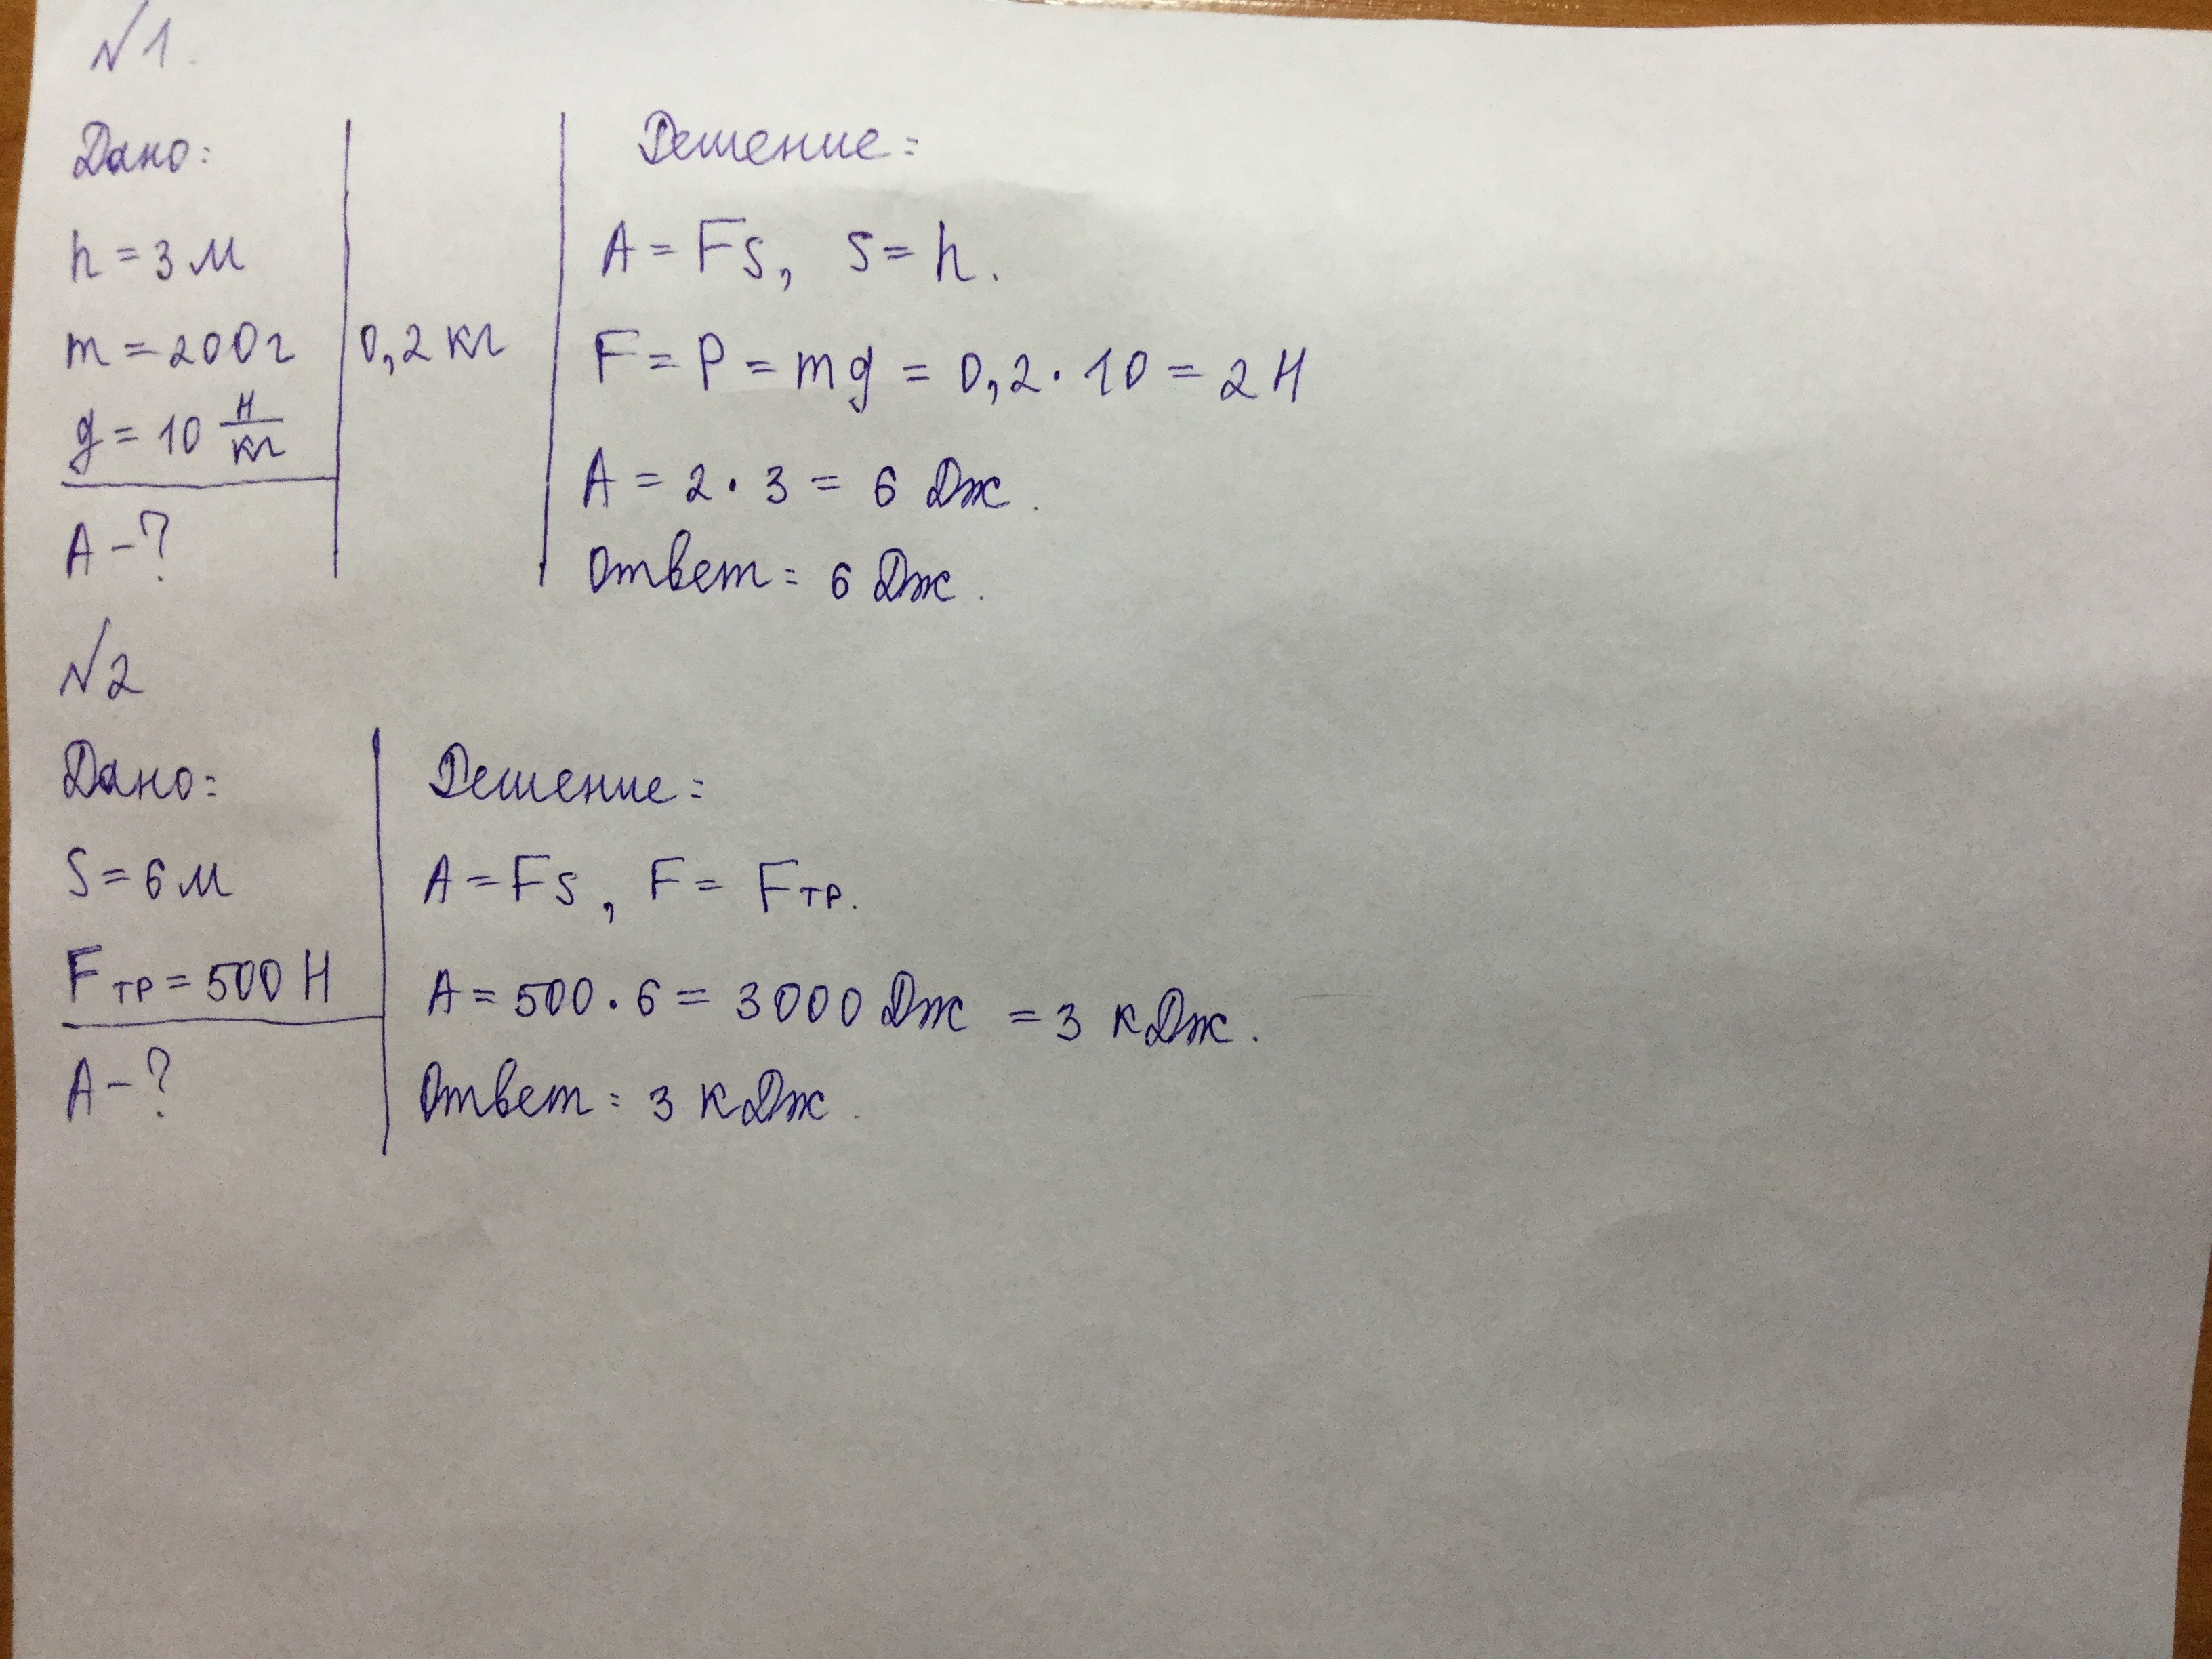 №1.
Дано:
h = 3 м
m = 200 г
g = 10 Н/кг
A - ?
0,2 кг
Решение:
A = Fs, s = h.
F = P = mg = 0,2 · 10 = 2 Н
A = 2 · 3 = 6 Дж.
Ответ: 6 Дж.
№2
Дано:
S = 6 м
Fтр = 500 Н
A - ?
Решение:
A = Fs, F = Fтр.
A = 500 · 6 = 3000 Дж = 3 кДж.
Ответ: 3 кДж.